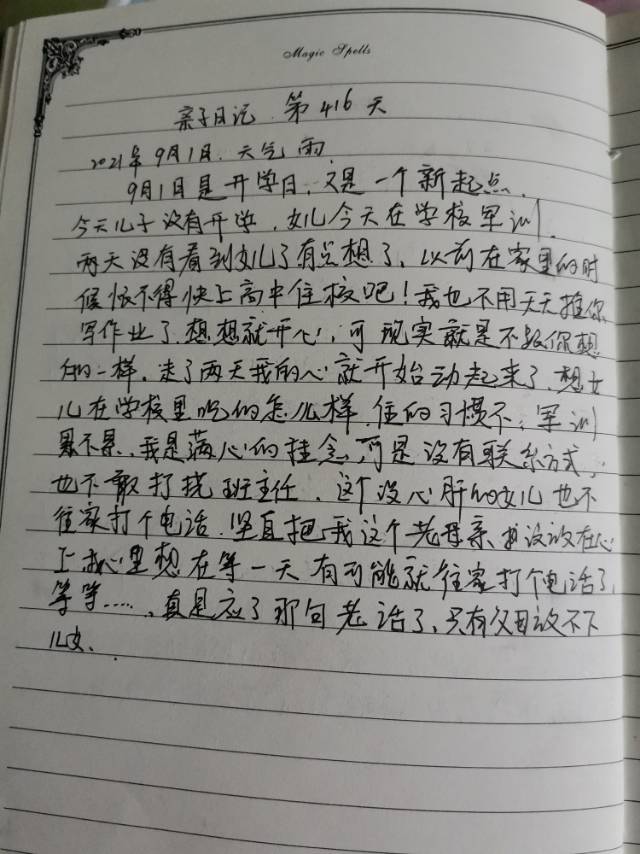 Magic Spells
亲子日记 第416天
2021年9月1日. 天气 雨
9月1日是开学日, 又是一个新起点.
今天儿子没有开学, 女儿今天在学校军训.
两天没有看到女儿了有点想了, 以前在家里的时
候恨不得快上高中住校吧! 我也不用天天推你
写作业了. 想想就开心, 可现实就是不跟你想
的一样. 走了两天我的心就开始动起来了, 想女
儿在学校里吃的怎么样, 住的习惯不, 军训
累不累, 我是满心的挂念, 可是没有联系方式,
也不敢打扰班主任, 这个没心肝的女儿也不
往家打个电话. 坚直把我这个老母亲 没放在心
上 心里想在等一天有可能就往家打个电话了,
等等……, 真是应了那句老话了, 只有父母放不下
儿女.